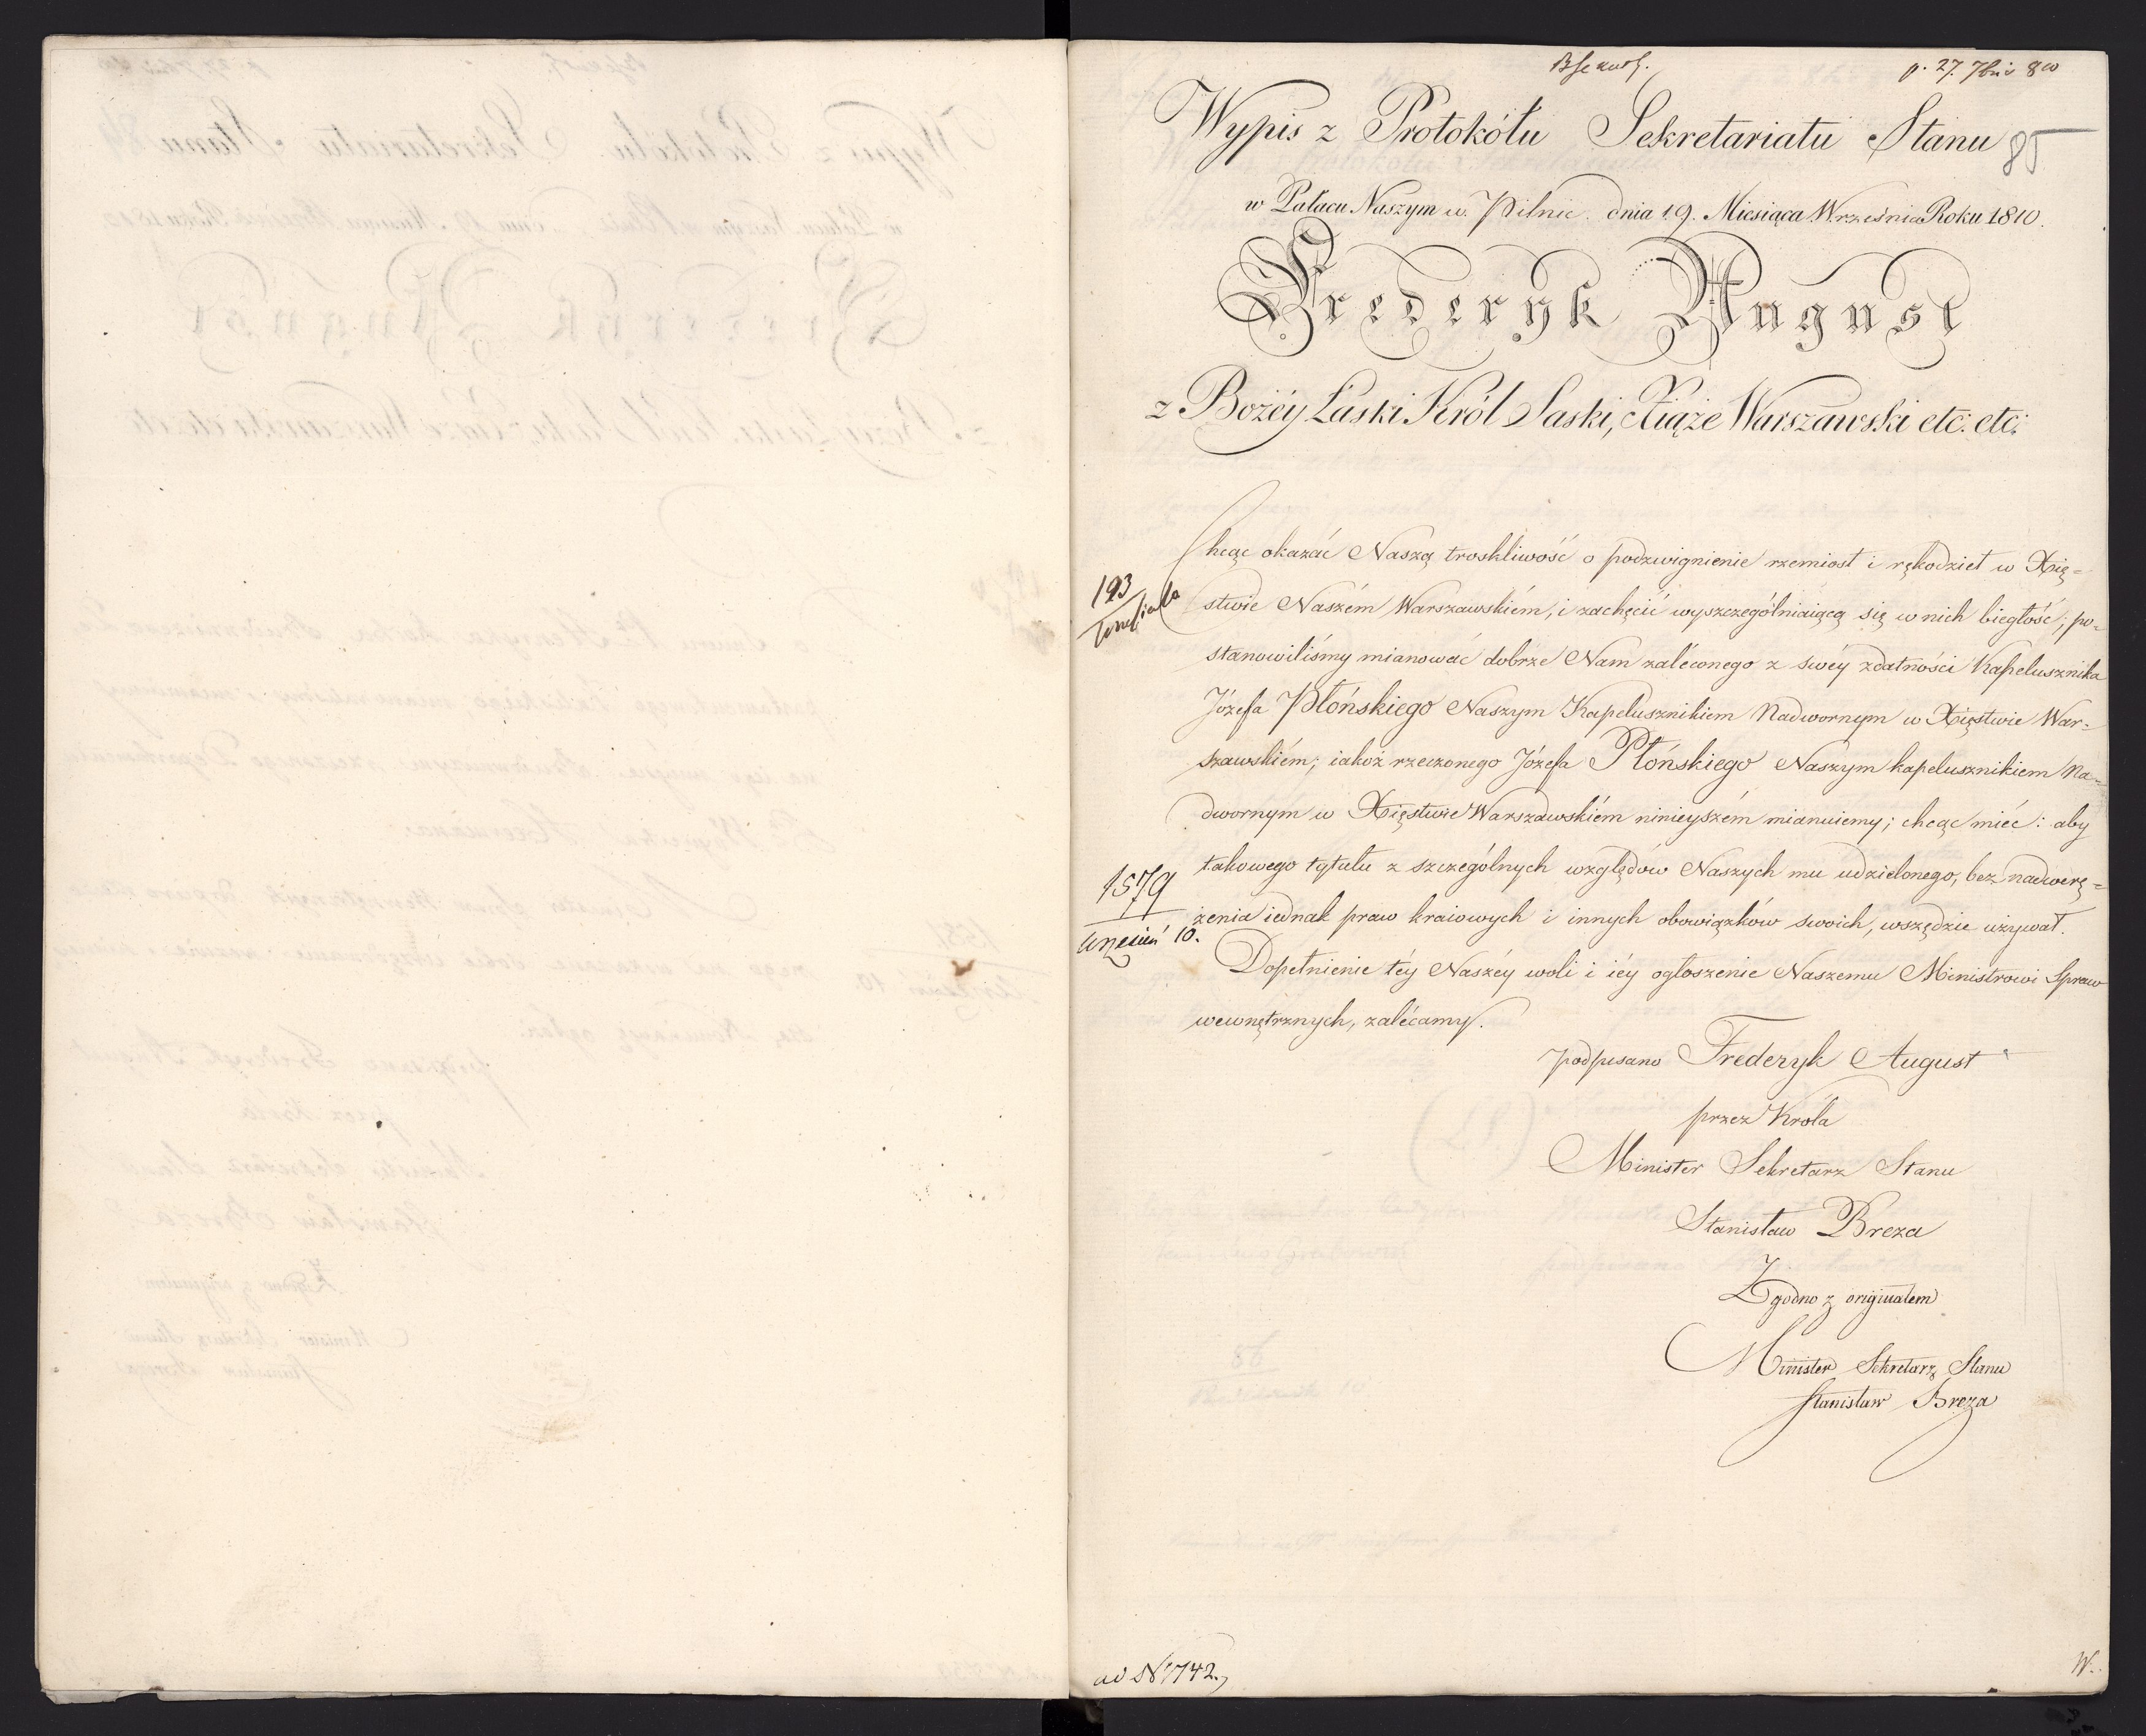 p. 27. 7bris 810
Wypis z Protokółu Sekretariatu Stanu
85
w Pałacu Naszym w Pilnic dnia 19. Miesiąca Września Roku 1810.
Frederyk August
z Bożéy Łaski Król Saski, Xiąże Warszawski etc: etc:
Chcąc okazać Naszą troskliwość o podzwignienie rzemiost i rękodzieł w Xię=
193
stwie Naszém Warszawskiém, i zachęcić wyszczególniaiącą się w nich biegłość; po=
stanowiliśmy mianować dobrze Nam zaléconego z swéy zdatności Kapelusznika
Józefa Płońskiego Naszym Kapelusznikiem Nadwornym w Xięstwie War=
szawskiém; iakoż rzeczonego Józefa Płońskiego Naszym kapelusznikiem Na=
dwornym w Xięstwie Warszawskiém ninieyszém mianuiemy; chcąc mieć: aby
takowego tytułu z szczególnych względów Naszych mu udzielonego, bez nadwerę=
1579
żenia iednak praw kraiowych i innych obowiązków swoich, wszędzie używał.
Wrzesień 10.
Dopełnienie téy Naszéy woli i iéy ogłoszenie Naszemu Ministrowi Spraw
wewnętrznych, zalécamy.
podpisano Frederyk August
przez Króla
Minister Sekretarz Stanu
Stanisław Breza
Zgodno z originałem
Minister Sekretarz Stanu
Stanisław Breza
ad N 1742.
W.